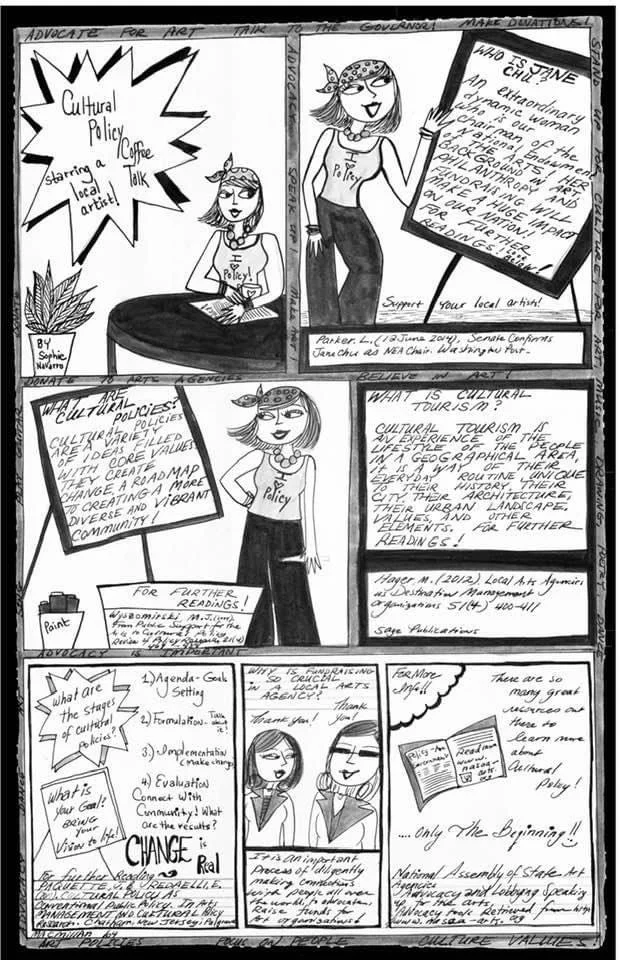 ADVOCATE FOR ART TALK TO THE GOVERNOR! MAKE DONATIONS!
Cultural
Policy
/Coffee
Talk
starring a
local
artist!
I
♥
Policy!
BY
Sophie
Navarro
ADVOCACY SPEAK UP
WHO IS JANE
CHU?
An extraordinary
dynamic woman
who is our
Chairman of the
National Endowment
of THE ARTS! HER
BACKGROUND IN ART,
PHILANTHROPY AND
FUNDRAISING WILL
MAKE A HUGE IMPACT
ON OUR NATION!
FOR FURTHER
READINGS
I
♥
Policy!
Support your local artists!
Parker, L. (12 June 2014), Senate Confirms
Jane Chu as NEA Chair. Washington Post.
STAND UP FOR CULTURE!
MUSIC DRAWING POETRY DANCE
DONATE TO ARTS AGENCIES
BELIEVE IN ART!
WHAT ARE
CULTURAL
POLICIES?
CULTURAL POLICIES
ARE A VARIETY
OF IDEAS FILLED
WITH CORE VALUES.
THEY CREATE
CHANGE A ROADMAP
TO CREATING A MORE
DIVERSE AND VIBRANT
COMMUNITY!
I
♥
Policy
Paint
FOR FURTHER
READINGS!
Wyszomirski M.J.
From Public Support for the
Arts to Cultural Policy
Review of Policy Research, 21(4)
WHAT IS CULTURAL
TOURISM?
CULTURAL TOURISM IS
AN EXPERIENCE OF THE
LIFESTYLE OF THE PEOPLE
IN A GEOGRAPHICAL AREA,
it is A WAY OF THEIR
EVERYDAY ROUTINE UNIQUE
TO THEIR HISTORY, THEIR
CITY, THEIR ARCHITECTURE,
THEIR URBAN LANDSCAPE,
VALUES, AND OTHER
ELEMENTS. FOR FURTHER
READINGS!
Hager, M. (2012). Local Arts Agencies
as Destination Management
organizations 51(4) 400-411
Sage Publications
ADVOCACY IS IMPORTANT
What are
the stages
of cultural
Policies?
What is
your Goal?
BRING
your
Vision to life!
1.) Agenda - Goals
Setting
2.) Formulation - Talk
about
it!
3.) Implementation
(make change)
4.) Evaluation
Connect With
Community! What
are the results?
CHANGE is
Real
For further Reading
PAQUETTE, J. & REDAELLI, E.
CULTURAL POLICY AS
Conventional Public Policy. In Arts
MANAGEMENT AND CULTURAL Policy
Research. Chatham, New Jersey: Palgrave
Macmillan
WHY IS FUNDRAISING
SO CRUCIAL
IN A LOCAL ARTS
AGENCY?
Thank you!
Thank
You!
It is an important
Process of diligently
making connections
with people all over
the world, to advocate,
Raise funds for
Art organizations!
For More
Info!!
There are so
many great
resources out
there to
learn more
about
Cultural
Policy!
Read more
www.
nasaa-
arts.
org
.... only The Beginning!!
National Assembly of State Art
Agencies
Advocacy and Lobbying Speaking
up for the arts.
Advocacy tools Retrieved from http
www.nasaa-arts.org
ART POLICIES
FOCUS ON PEOPLE
CULTURE VALUES!